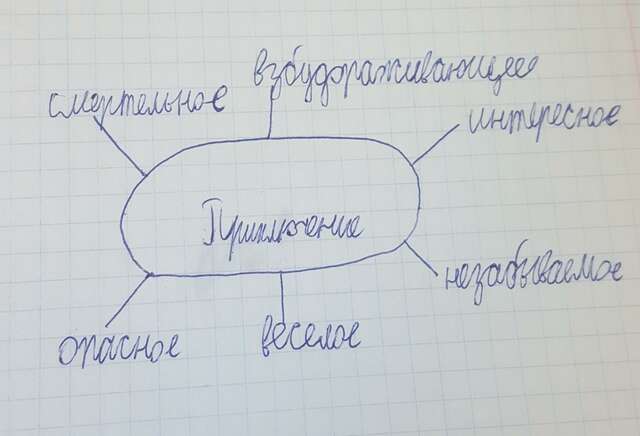 взбудораживающее
смертельное
интересное
Приключение
незабываемое
опасное
веселое